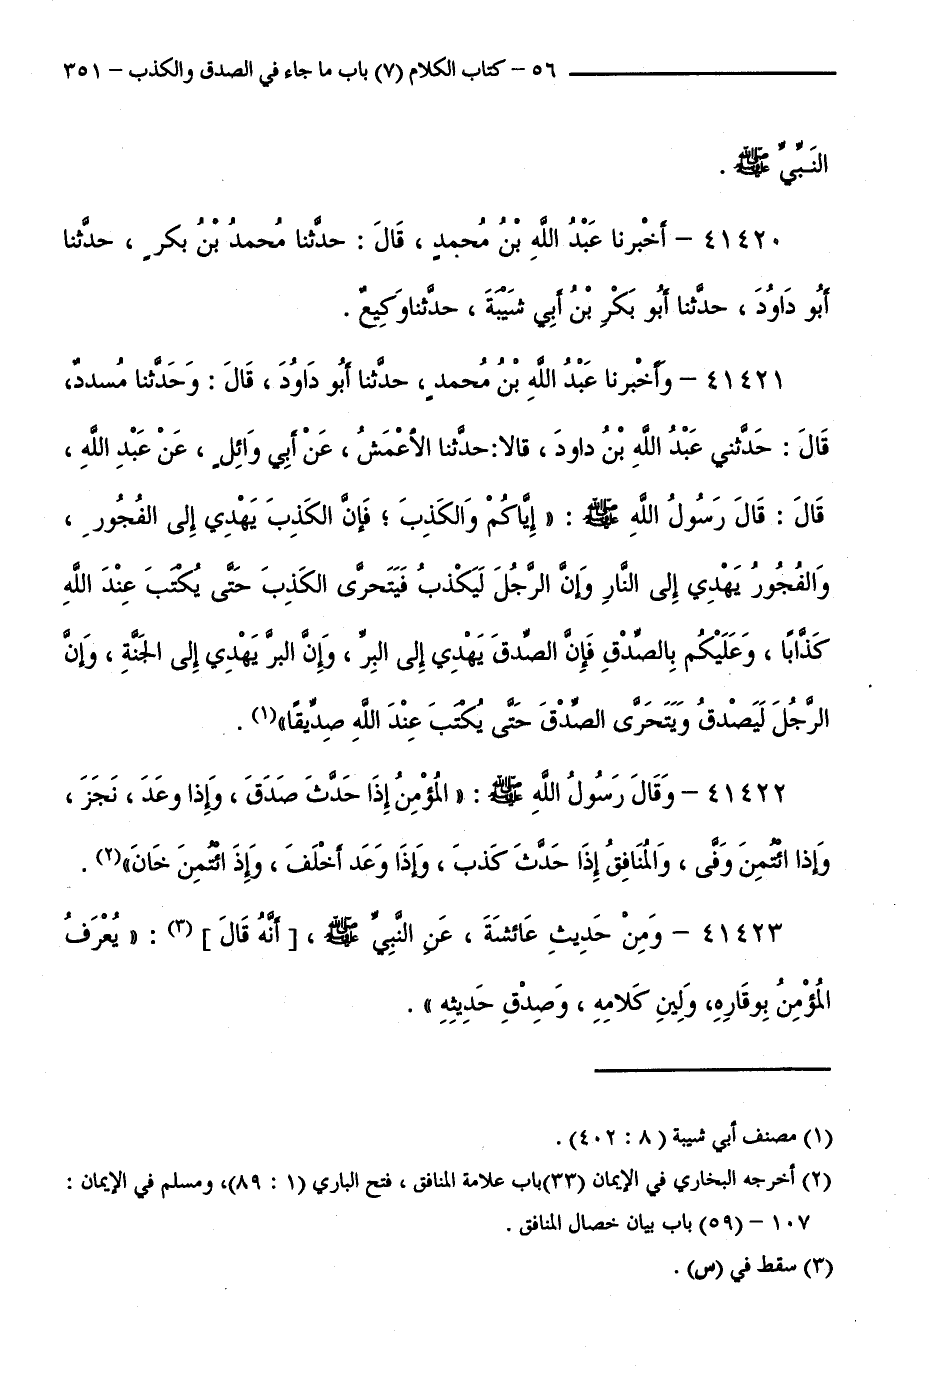 ٥٦ – كتاب الكلام (٧) باب ما جاء في الصدق والكذب – ٣٥١
النَبِّيِّ ﷺ .
٤١٤٢٠ – أَخْبرنا عَبْدُ اللَّهِ بْنُ مُحمدٍ ، قَالَ : حدثَّنا مُحمدُ بْنُ بكرٍ ، حدثَّنا
أَبُو دَاوُدَ ، حدثَّنا أَبُو بَكْرِ بْنُ أَبِي شَيْبَةَ ، حدثَّناوَكِيعٌ .
٤١٤٢١ – وأَخْبرنا عَبْدُ اللَّهِ بْنُ مُحمدٍ ، حدثَّنا أَبُو دَاوُدَ ، قَالَ : وَحَدثَّنا مُسددٌ،
قَالَ : حَدثَّني عَبْدُ اللَّهِ بْنُ داودَ ، قالا:حدثَّنا الأَعْمَشُ ، عَنْ أَبِي وَائِلٍ ، عَنْ عَبْدِ اللَّهِ ،
قَالَ : قَالَ رَسُولُ اللَّهِ ﷺ : « إِيَّاكُمْ وَالكَذِبَ ؛ فَإِنَّ الكَذِبَ يَهْدِي إِلى الفُجُورِ ،
وَالفُجُورُ يَهْدِي إِلى النَّارِ وَإِنَّ الرَّجُلَ لَيَكْذبُ فَيَتَحرَّى الكَذِبَ حَتَّى يُكْتَبَ عِنْدَ اللَّهِ
كَذَّابًا ، وَعَلَيْكُم بِالصِّدْقِ فَإِنَّ الصِّدقَ يَهْدِي إِلى البِرِّ ، وَإِنَّ البرَّ يَهْدِي إِلى الجَنَّةِ ، وَإِنَّ
الرَّجُلَ لَيَصْدقُ وَيَتَحَرَّى الصِّدْقَ حَتَّى يُكْتَبَ عِنْدَ اللَّهِ صِدِّيقًا»(١) .
٤١٤٢٢ – وَقَالَ رَسُولُ اللَّهِ ﷺ : « المُؤْمِنُ إِذَا حَدَّثَ صَدَقَ ، وَإِذا وعَدَ ، نَجَزَ ،
وَإِذا ائْتُمنَ وَفَّى ، وَالمُنَافِقُ إِذَا حَدَّثَ كَذبَ ، وَإِذَا وَعَد أَخْلَفَ ، وَإِذَ ائْتُمنَ خَانَ»(٢) .
٤١٤٢٣ – وَمِنْ حَدِيثِ عَائشَةَ ، عَنِ النَّبِيِّ ﷺ ، [ أَنَّهُ قَالَ ] (٣) : « يُعْرَفُ
المُؤْمِنُ بِوقَارِهِ، وَلِينِ كَلامِهِ ، وَصِدْقِ حَدِيثِهِ » .
(١) مصنف أبي شيبة ( ٨ : ٤٠٢) .
(٢) أخرجه البخاري في الإيمان (٣٣)باب علامة المنافق ، فتح الباري (١ : ٨٩)، ومسلم في الإيمان :
١٠٧ – (٥٩) باب بيان خصال المنافق .
(٣) سقط في (س) .